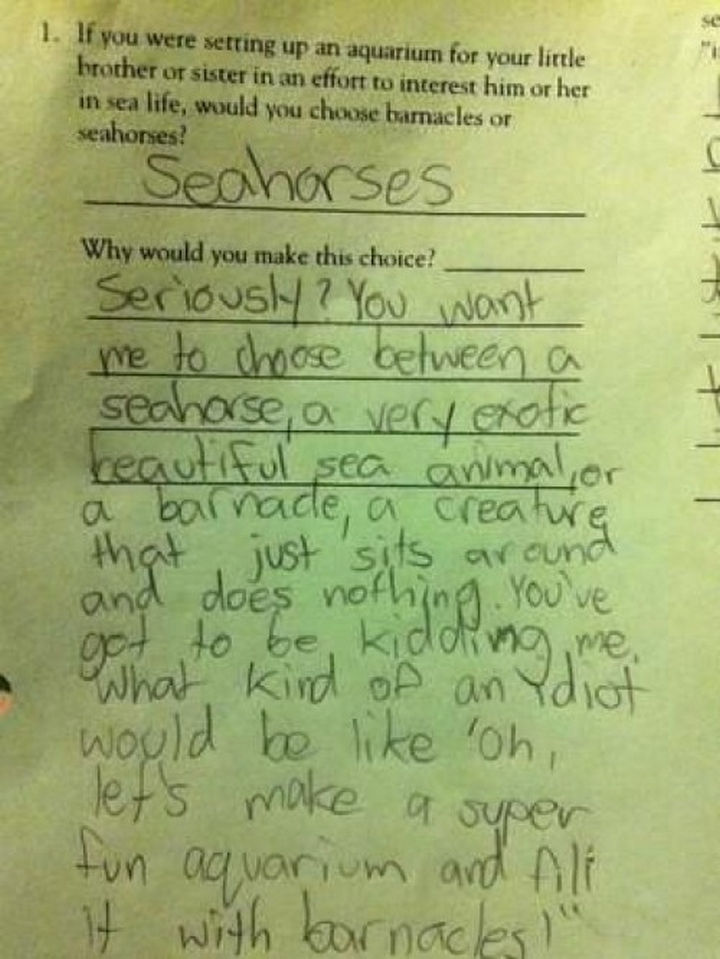 1. If you were setting up an aquarium for your little
brother or sister in an effort to interest him or her
in sea life, would you choose barnacles or
seahorses?
Seahorses
Why would you make this choice?
Seriously? You want
me to choose between a
seahorse, a very exotic
beautiful sea animal, or
a barnacle, a creature
that just sits around
and does nothing. You've
got to be kidding me.
What kind of an idiot
would be like 'Oh,
let's make a super
fun aquarium and fill
it with barnacles!"
se